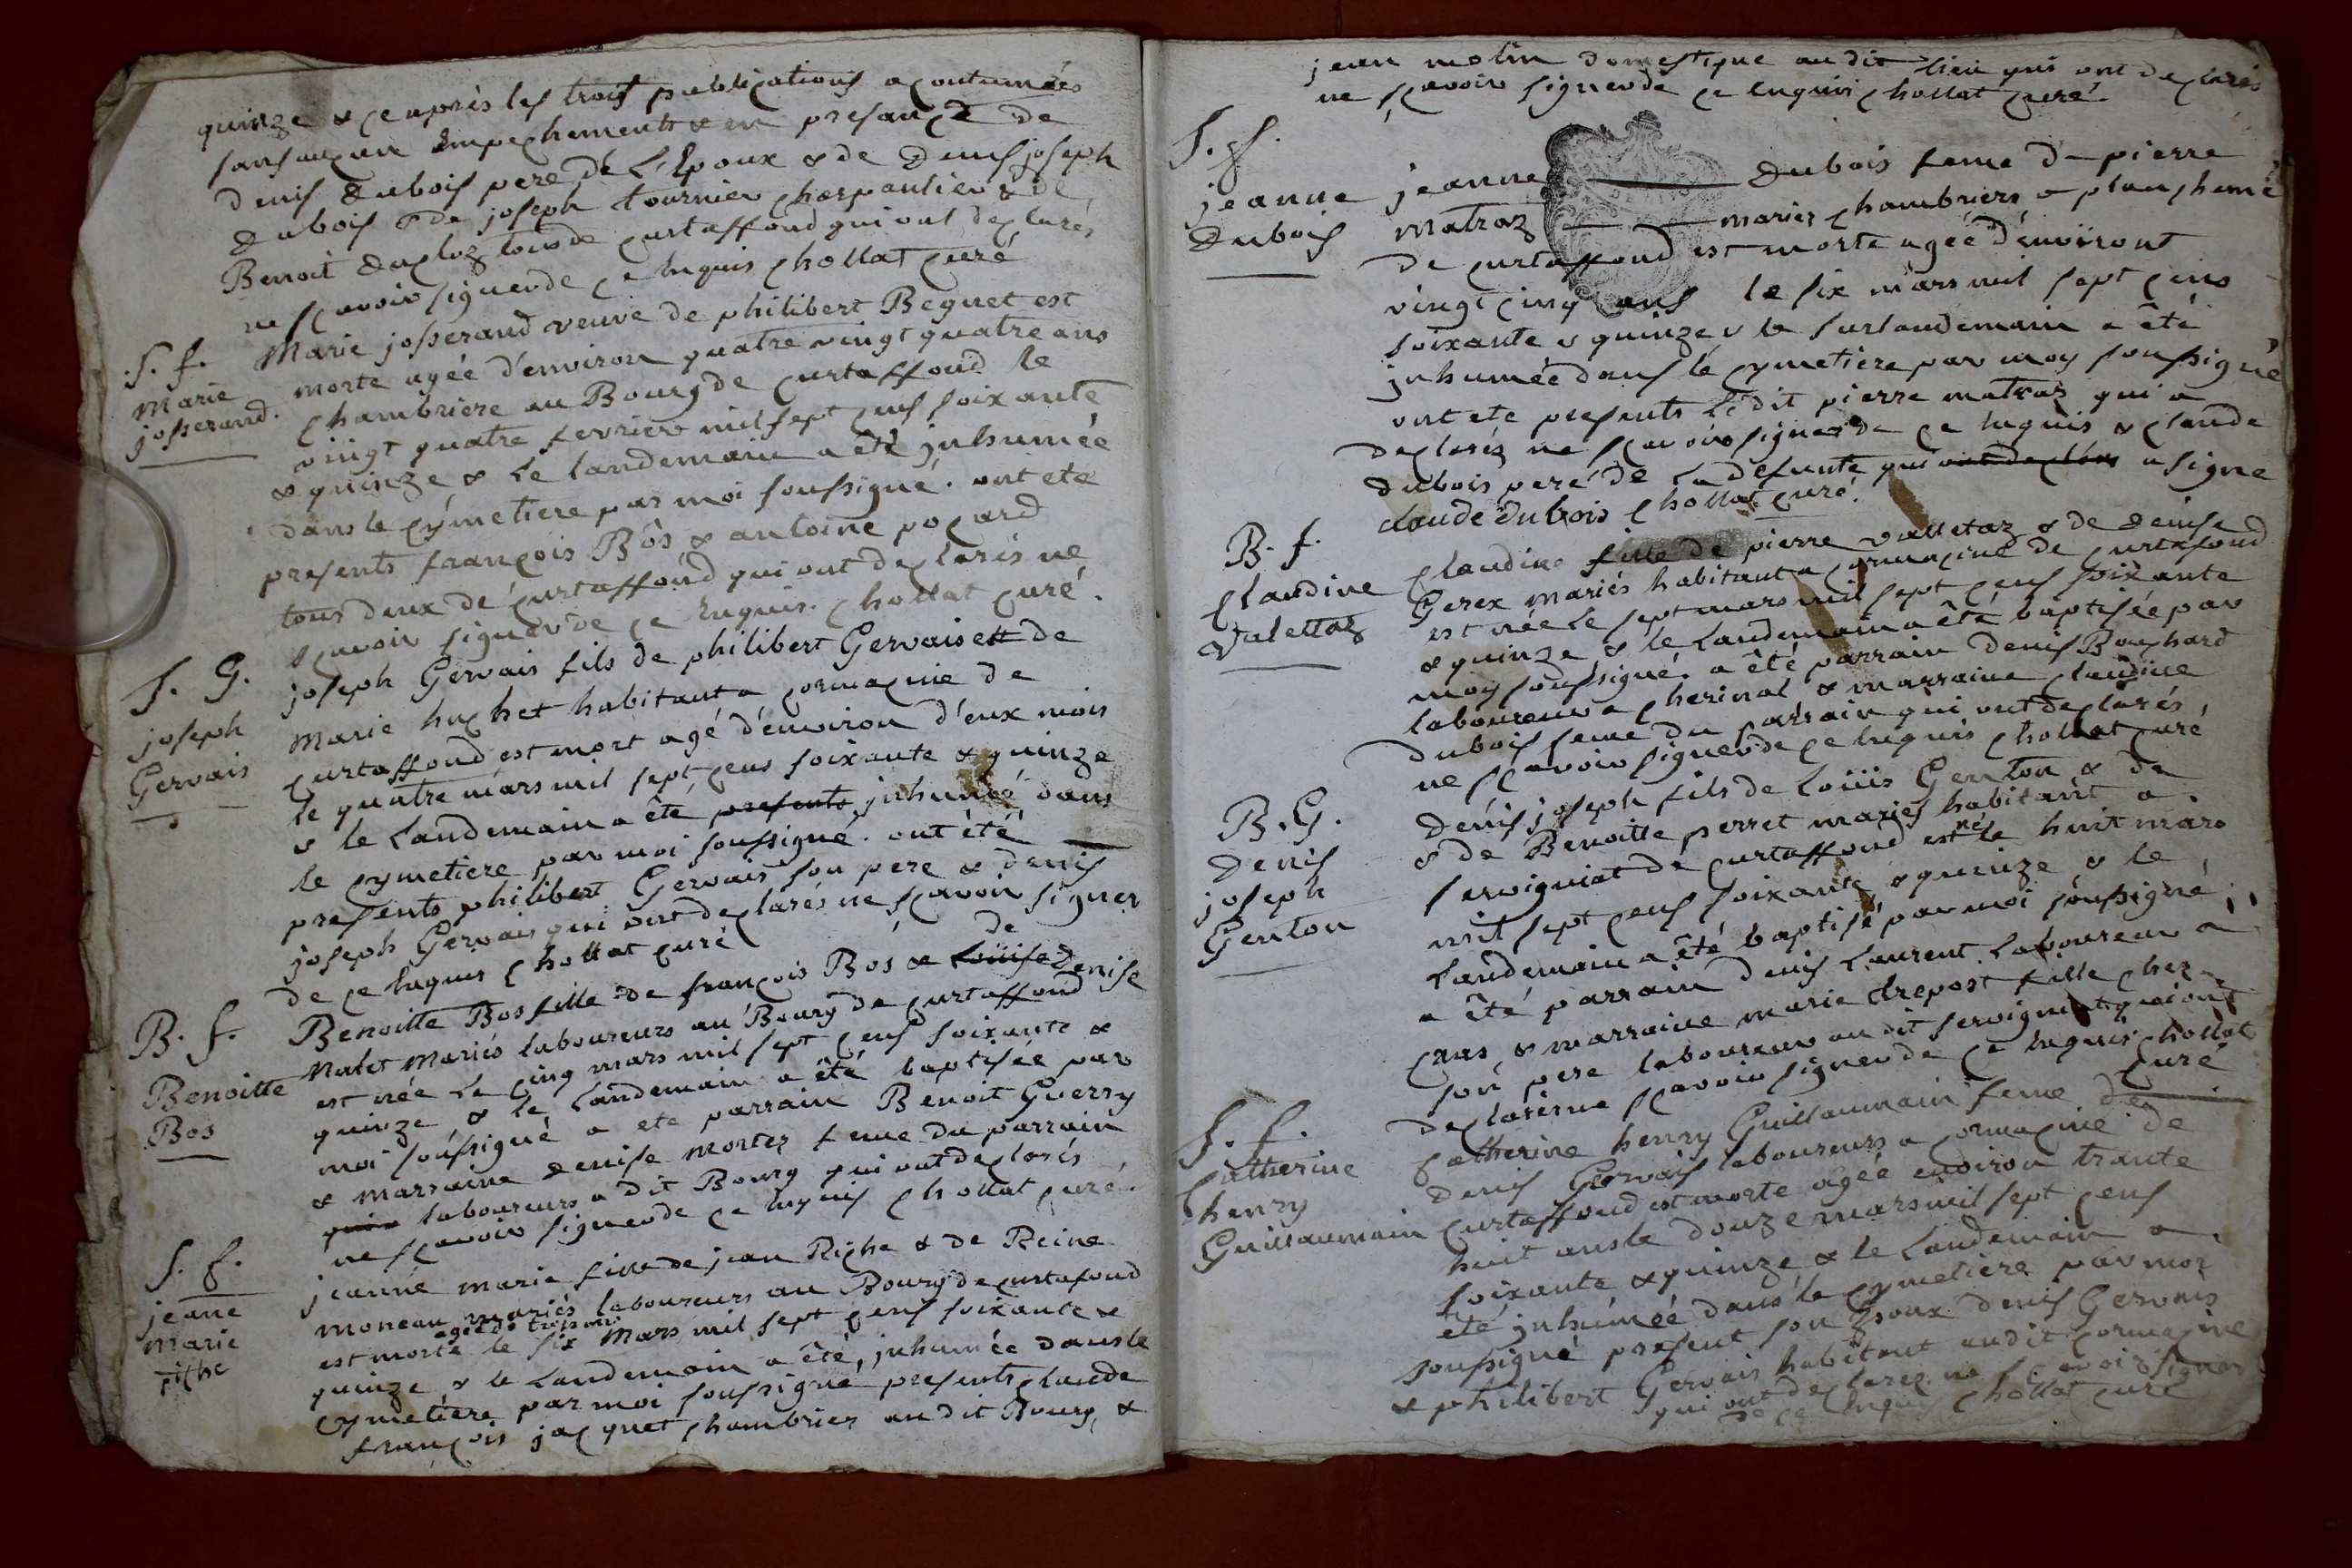 quinze & ce après les trois publications acoutumées
sans aucun Empechements & en presance de
denis Dubois pere de L'Epoux & de Denis joseph
Dubois & de joseph tournier charpantier & de
Benoit Ducloz tous de curtaffond qui ont declarés
ne scavoir signer de ce Enquis chollat curé
S. f.
Marie
josserand.
Marie josserand veuve de philibert Beguet est
morte agée d'environ quatre vingt quatre ans
chambriere au Bourg de curtaffond le
vingt quatre fevrier mil sept cens soixante
& quinze & Le landemain a été jnhumée
dans le cymetiere par moi soussigné. ont ete
presents françois Bôs & antoine pocard
tous deux de curtaffond qui ont declarés ne
scavoir signer de ce Enquis. chollat curé.
S. G.
joseph
Gervais
joseph Gervais fils de philibert Gervais ett de
Marie huchet habitant a cormacine de
curtaffond est mort agé d'environ d'eux mois
le quatre mars mil sept cens soixante & quinze
& le Landemain a été presents jnhumé dans
le cymetiere par moi soussigné. ont été
presents philibert Gervais son pere & denis
joseph Gervais qui ont declarés ne scavoir signer
de ce Enquis chollat curé
B. f.
Benoitte
Bos
Benoitte Bos fille de françois Bos & Loüise de Denise
Nalet Mariés laboureurs au Bourg de curtaffond
est née Le cinq mars mil sept cens soixante &
quinze & le Landemain a été baptisée par
moi soussigné a ete parrain Benoit Guerry
& marraine Denise mortez feme du parrain
laboureurs a dit Bourg qui ont declarés
ne scavoir signer de ce Enquis chollat curé.
S. f.
jeane
marie
riche
jeanne marie fille de jean Riche & de Reine
moneau mariés laboureurs au Bourg de curtafond
est morte agée de trois le six Mars mil sept cens soixante &
quinze & le Landemain a été, jnhumée dans le
cymetiere par moi soussigné presents claude
françois jacquet chambrier au dit Bourg &
jean molin domestique au dit lieu qui ont declarés
ne scavoir signer de ce Enquis chollat curé.
S. f.
jeanne
Dubois
jeanne Dubois feme de pierre
Matraz mariez chambriers a planchemé
de curtaffond est morte agée d'environt
vingt cinq ans le six mars mil sept cens
soixante & quinze & le surlandemain a été
jnhumée dans le cymetiere par moy soussigné
ont ete presents le dit pierre matraz qui a
declarez ne scavoir signer de ce Enquis & claude
Dubois pere de La defunte qui ont declarés a signe
claude dubois chollat curé.
B. f.
claudine
Valettaz
claudine fille de pierre valletaz & de denise
Gerex mariés habitant a cormacine de curtafond
est née Le sept mars mil sept cens soixante
& quinze & le Landemain a été baptisée par
moy soussigné. a été parrain denis Bouchard
laboureur a cherinal & marraine claudine
Dubois feme du parrain qui ont declarés,
ne scavoir signer de ce Enquis chollat curé
B. G.
Denis
joseph
Genton
Denis joseph fils de Loüis Genton & de
& de Benoitte perret mariés habitant a
servigniat de curtaffond est né le huit mars
mil sept cens soixante & quinze & le
Landemain a été baptisé par moi soussigné
a été parrain denis Laurent Laboureur a
cras & marraine marie trepost fille chez
son pere laboureur au dit servigniat qui ont
declarés ne scavoir signer de ce Enquis chollat
curé
S. f.
Catherine
henry
Guillaumain
Catherine henry Guillaumain feme de
Denis Gervais laboureurs a cormacine de
curtaffond est morte agée environ trante
huit ans le douze mars mil sept cens
soixante & quinze & le Landemain a
été jnhumée dans le cymetiere par moi
soussigné present son Epoux denis Gervais
& philibert Gervais habitant audit cormacine
qui ont declarez ne scavoir signer
de ce Enquis chollat curé